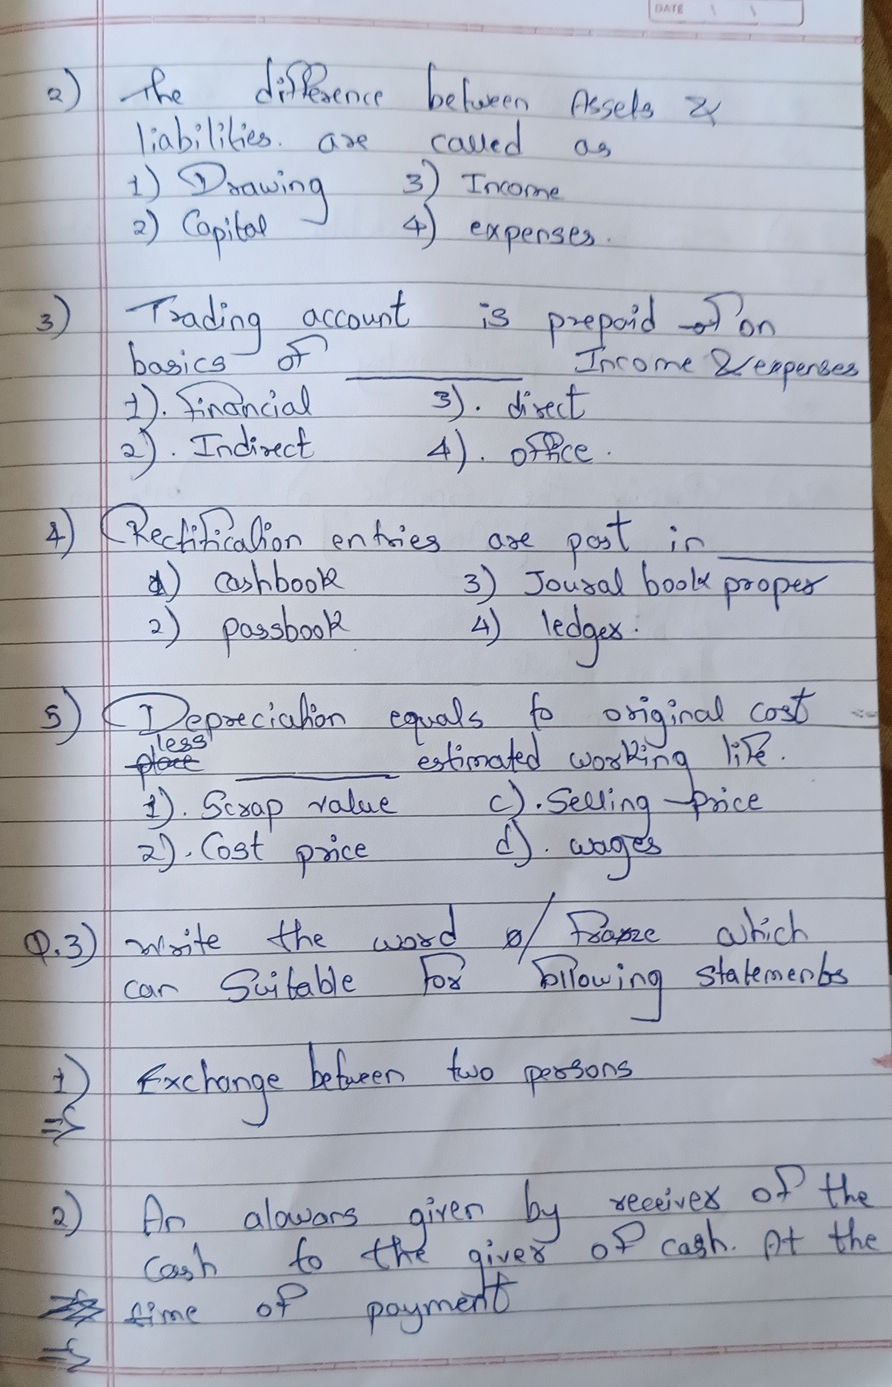 DATE
2) The difference between Assets &
liabilities. are called as
1) Drawing 3) Income
2) Capital 4) expenses.
3) Trading account is prepaid of on
basics of ________ Income & expenses
1). financial 3). direct
2). Indirect 4). office.
4) Rectification entries are post in ________
1) cashbook 3) Joural book proper
2) passbook 4) ledger.
5) Depreciation equals to original cost
less
place ________ estimated working life.
1). Scrap value c). Selling price
2). Cost price d). wages
Q.3) Write the word o/ Fraze which
can Suitable for following statements
1) Exchange between two persons
⇒
2) An alowans given by receiver of the
cash to the giver of cash. At the
time of payment
⇒